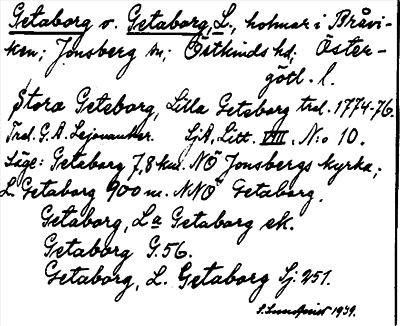 Getaborg o. Getaborg, L., holmar i Bråvi-
ken; Jonsberg sn; Östkinds hd; Öster-
götl. l.
Stora Geteborg, Lilla Geteborg trol. 1774-76.
Trol. G. A. Lejonancker. SjA, Litt. VIII. N:o 10.
Läge: Getaborg 7,8 km. NÖ Jonsbergs kyrka;
L. Getaborg 900 m. NNÖ Getaborg.
Getaborg, La Getaborg ek.
Getaborg G.56.
Getaborg, L. Getaborg Sj. 251.
S. Lundqvist 1939.